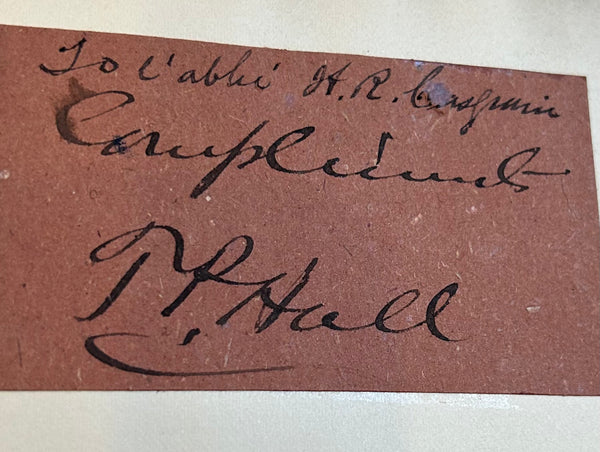 To l'abbé H. R. Casgrain
Compliments
T. P. Hall